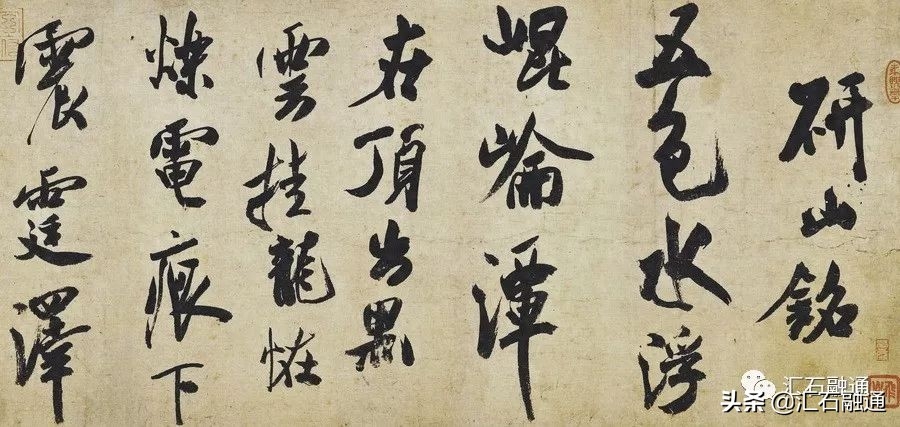 研山銘
五色水浮
崐崘潭
在頂出黑
雲挂龍恠
爍電痕下
震霆澤
汇石融通
头条@汇石融通